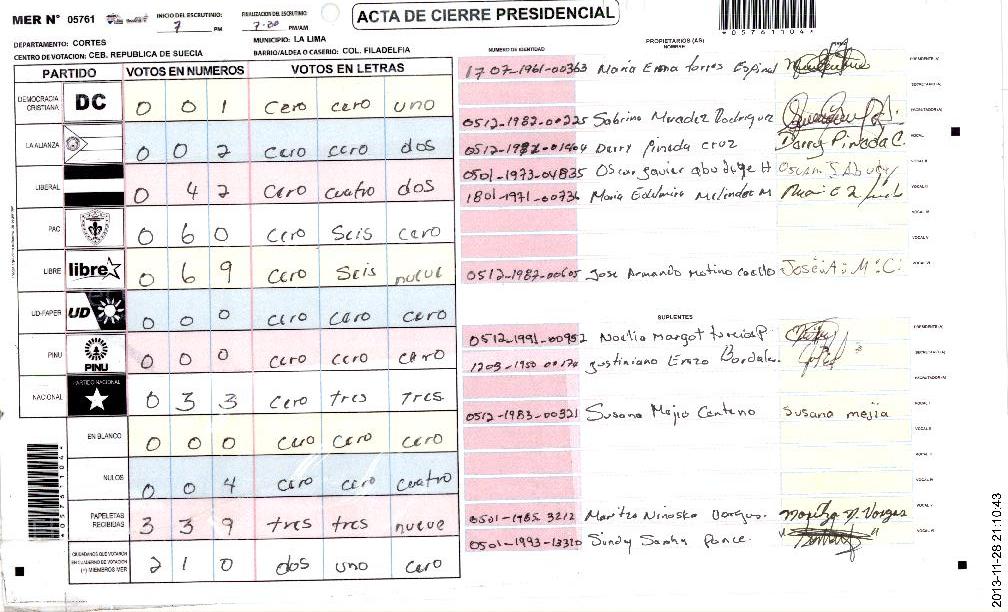 MER N° 05761
INICIO DEL ESCRUTINIO: 7 PM
FINALIZACION DEL ESCRUTINIO: 7-30 PM/AM
ACTA DE CIERRE PRESIDENCIAL
*05761104*
DEPARTAMENTO: CORTES
MUNICIPIO: LA LIMA
CENTRO DE VOTACION: CEB. REPUBLICA DE SUECIA
BARRIO/ALDEA O CASERIO: COL. FILADELFIA
PARTIDO VOTOS EN NUMEROS VOTOS EN LETRAS
DEMOCRACIA CRISTIANA DC 0 0 1 cero cero uno
LA ALIANZA 0 0 2 cero cero dos
LIBERAL 0 4 2 cero cuatro dos
PAC 0 6 0 cero seis cero
LIBRE libre 0 6 9 cero seis nueve
UD-FAPER UD 0 0 0 cero cero cero
PINU PINU 0 0 0 cero cero cero
NACIONAL PARTIDO NACIONAL 0 3 3 cero tres tres
EN BLANCO 0 0 0 cero cero cero
NULOS 0 0 4 cero cero cuatro
PAPELETAS RECIBIDAS 3 3 9 tres tres nueve
CIUDADANOS QUE VOTARON EN CUADERNO DE VOTACION (+) MIEMBROS MER 2 1 0 dos uno cero
*05761104*
PROPIETARIOS (AS)
NUMERO DE IDENTIDAD NOMBRE
1707-1961-00363 Maria Emma torres Espinal PRESIDENTE(A)
SECRETARIO(A)
0512-1982-00225 Sabrina ESCRUTADOR(A)
Darry Pineda cruz Darry Pineda C. VOCAL I
0501-1973-04835 Oscar Javier VOCAL II
1801-1971-00736 Maria VOCAL III
VOCAL IV
VOCAL V
0512-1987-00605 Jose Armando VOCAL VI
SUPLENTES
0512-1991-00952 Noelia Margot PRESIDENTE(A)
Justiniano SECRETARIO(A)
ESCRUTADOR(A)
0512-1983-00321 Susana Mejia Centeno Susana mejia VOCAL I
VOCAL II
VOCAL III
VOCAL IV
0501-1985-3212 Maritza Ninoska Vargas. Maritza N. Vargas VOCAL V
0501-1993-13310 Sindy Ponce. VOCAL VI
2013-11-28 21:10:43